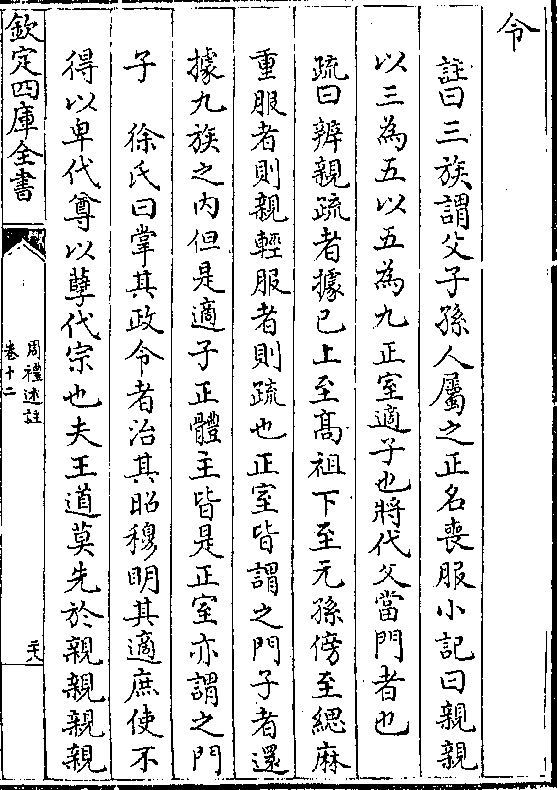 令
註曰三族謂父子孫人屬之正名喪服小記曰親親
以三為五以五為九正室適子也將代父當門者也
疏曰辨親疏者據已上至髙祖下至元孫傍至緦麻
重服者則親輕服者則疏也正室皆謂之門子者還
據九族之内但是適子正體主皆是正室亦謂之門
子　徐氏曰掌其政令者治其昭穆明其適庶使不
得以卑代尊以孽代宗也夫王道莫先於親親親親
欽定四庫全書
周禮述註
卷十二
二十八